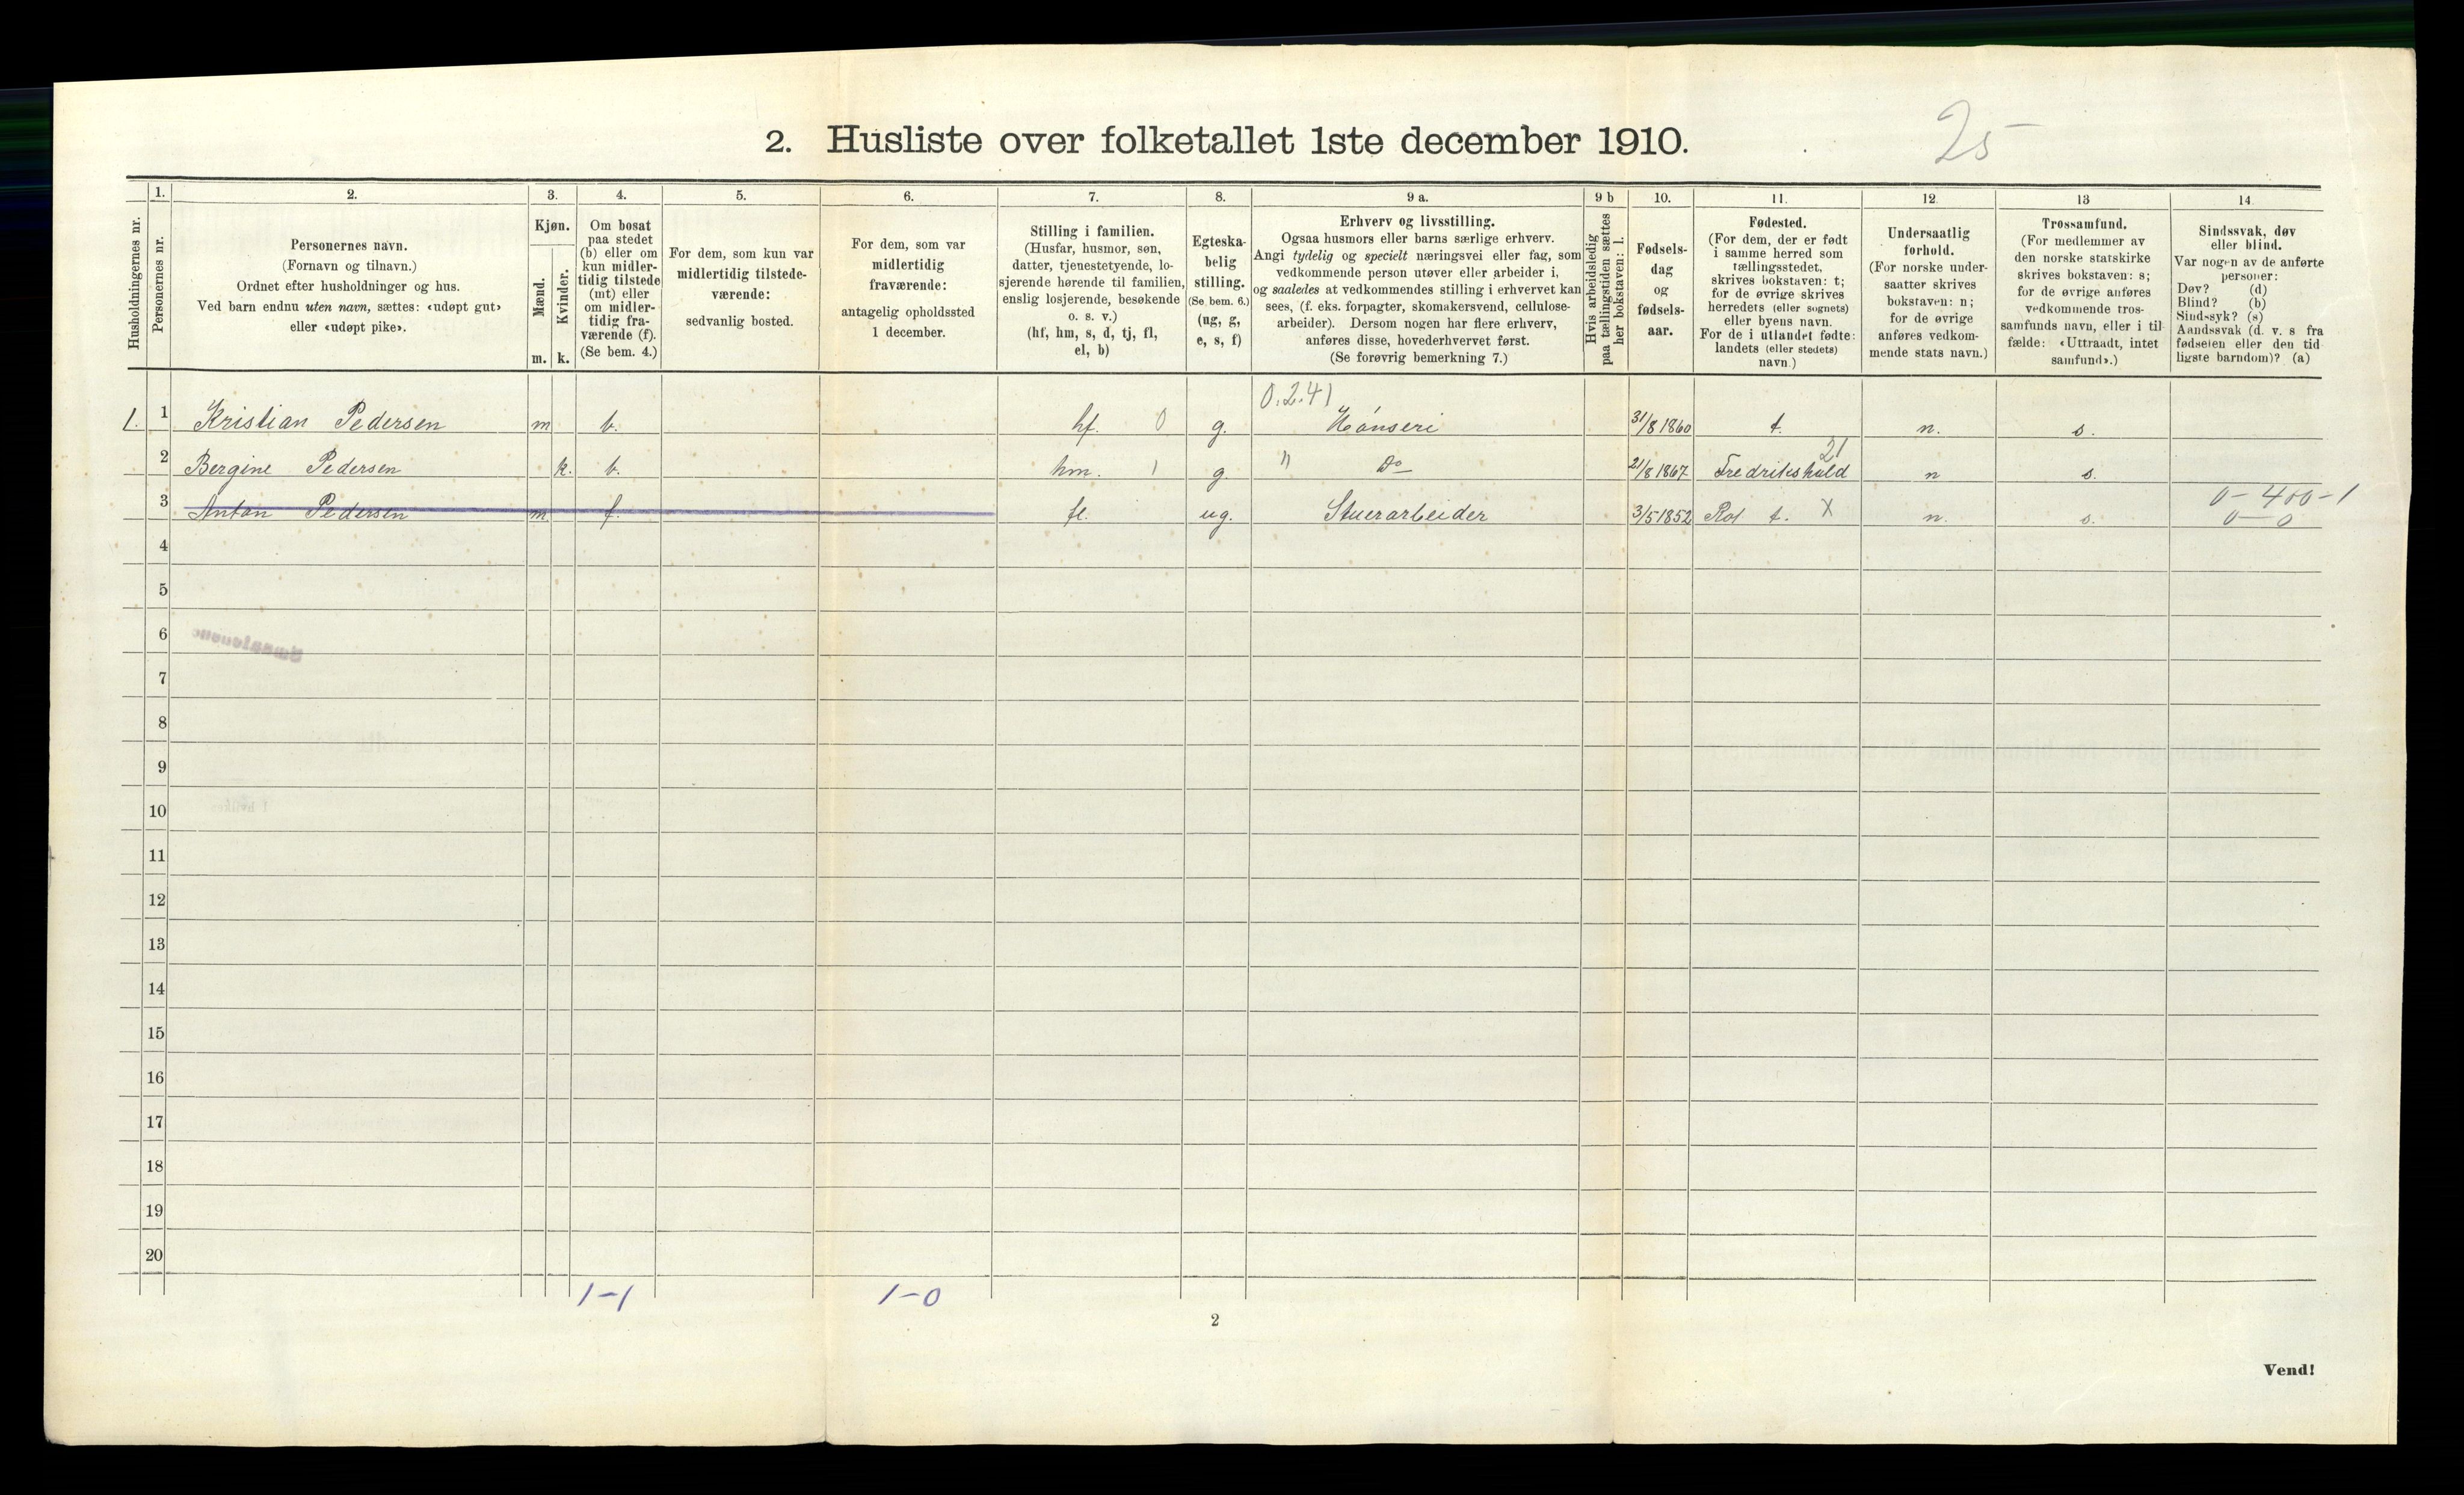 2. Husliste over folketallet 1ste december 1910.
25
Husholdningernes nr.
1.
Personernes nr.
2.
Personernes navn.
(Fornavn og tilnavn.)
Ordnet efter husholdninger og hus.
Ved barn endnu uten navn, sættes: «udøpt gut»
eller «udøpt pike».
3.
Kjøn.
Mænd.
Kvinder.
m. k.
4.
Om bosat
paa stedet
(b) eller om
kun midler-
tidig tilstede
(mt) eller
om midler-
tidig fra-
værende (f).
(Se bem. 4.)
5.
For dem, som kun var
midlertidig tilstede-
værende:
sedvanlig bosted.
6.
For dem, som var
midlertidig
fraværende:
antagelig opholdssted
1 december.
7.
Stilling i familien.
(Husfar, husmor, søn,
datter, tjenestetyende, lo-
sjerende hørende til familien,
enslig losjerende, besøkende
o. s. v.)
(hf, hm, s, d, tj, fl,
el, b)
8.
Egteska-
belig
stilling.
(Se bem. 6.)
(ug, g,
e, s, f)
9 a.
Erhverv og livsstilling.
Ogsaa husmors eller barns særlige erhverv.
Angi tydelig og specielt næringsvei eller fag, som
vedkommende person utøver eller arbeider i,
og saaledes at vedkommendes stilling i erhvervet kan
sees, (f. eks. forpagter, skomakersvend, cellulose-
arbeider). Dersom nogen har flere erhverv,
anføres disse, hovederhvervet først.
(Se forøvrig bemerkning 7.)
9 b
Hvis arbeidsledig
paa tællingstiden sættes
her bokstaven: l.
10.
Fødsels-
dag
og
fødsels-
aar.
11.
Fødested.
(For dem, der er født
i samme herred som
tællingsstedet,
skrives bokstaven: t;
for de øvrige skrives
herredets (eller sognets)
eller byens navn.
For de i utlandet fødte:
landets (eller stedets)
navn.)
12.
Undersaatlig
forhold.
(For norske under-
saatter skrives
bokstaven: n;
for de øvrige
anføres vedkom-
mende stats navn.)
13
Trossamfund.
(For medlemmer av
den norske statskirke
skrives bokstaven: s;
for de øvrige anføres
vedkommende tros-
samfunds navn, eller i til-
fælde: «Uttraadt, intet
samfund».)
14
Sindssvak, døv
eller blind.
Var nogen av de anførte
personer:
Døv? (d)
Blind? (b)
Sindssyk? (s)
Aandssvak (d. v. s fra
fødselen eller den tid-
ligste barndom)? (a)
0.2.41
1. 1 Kristian Pedersen m b. hf. 0 g. Hønseri 31/8 1860 t. n. s.
21
2 Bergine Pedersen k. b. hm. 1 g. " Do 21/8 1867 Fredrikshald n s.
0-400-1
3 Anton Pedersen m f. fl. ug. Stuerarbeider 3/5 1852 t. X n. s. 0-0
4
5
6
7
8
9
10
11
12
13
14
15
16
17
18
19
20
1-1 1-0
2
Vend!